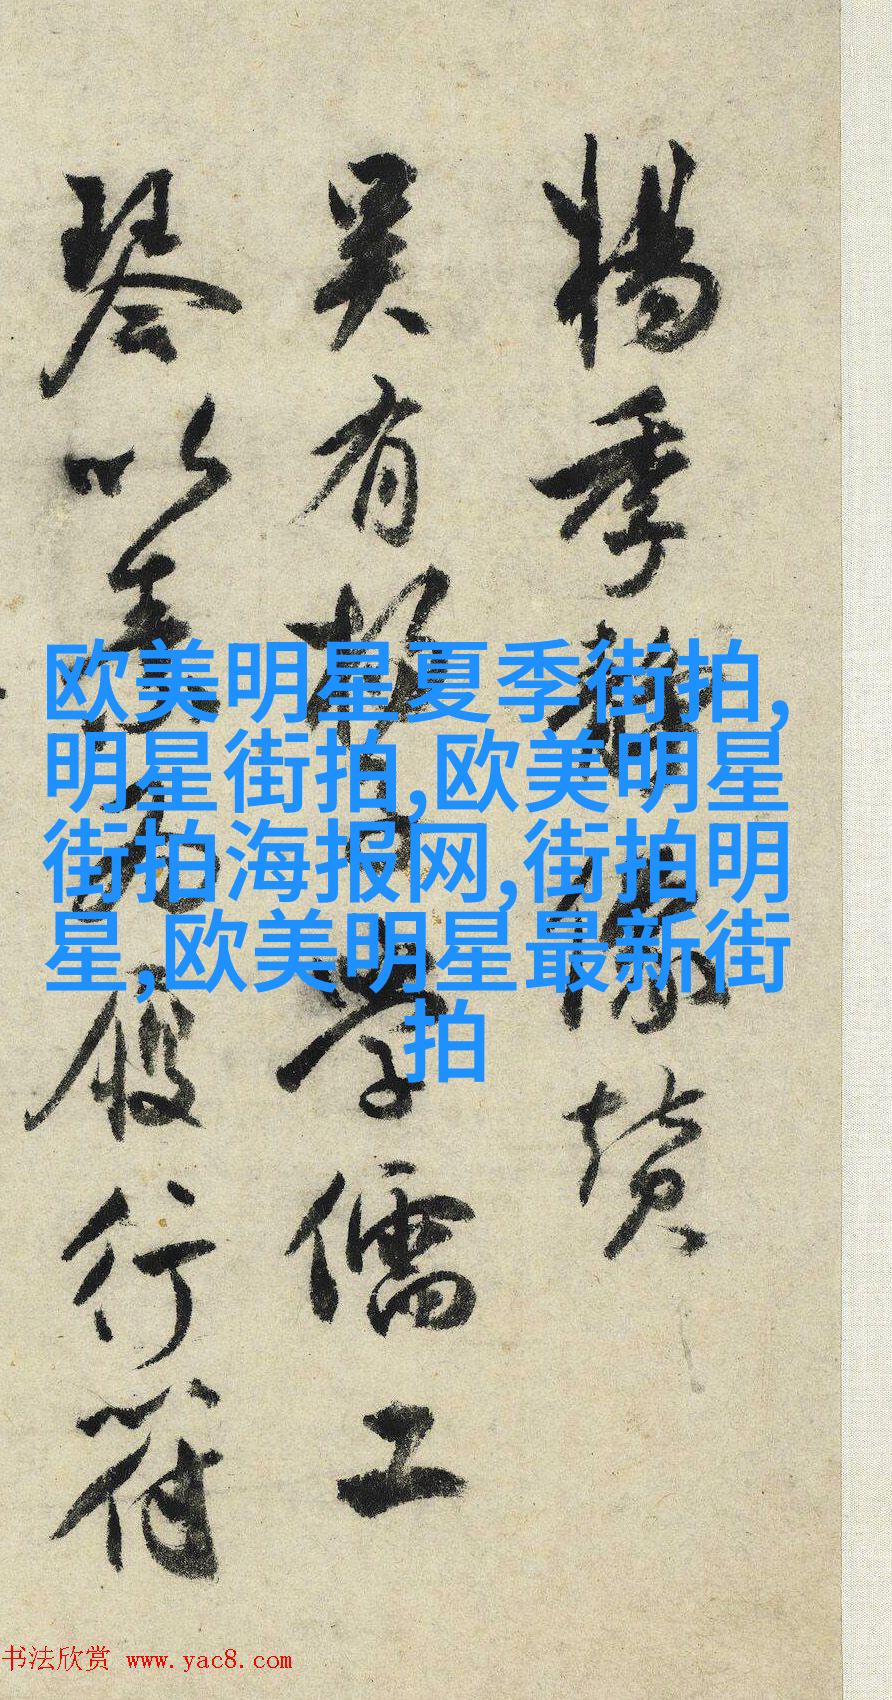 楊季贊
吴有学儒工
琴以履行符
欧美明星夏季街拍,
明星街拍,欧美明星
街拍海报网,街拍明
星,欧美明星最新街
拍
书法欣赏 www.yac8.com